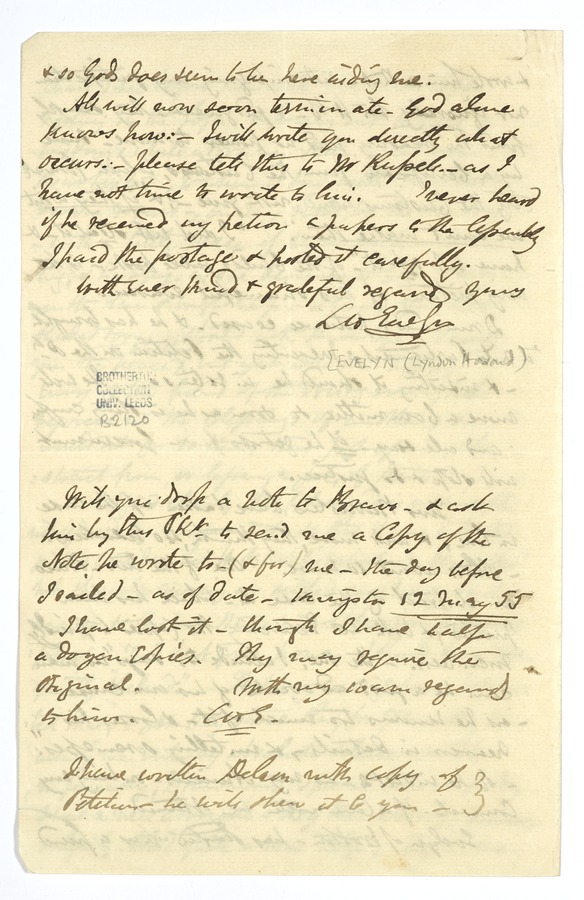 & so Gods does seem to be here aiding me.
All will now soon terminate - God alone
knows how :- I will write you directly what
occurs :- please tell this to Mr Russell - as I
have not time to write to him. I never heard
if he received my petion & papers to the Assembly
I paid the postage & posted it carefully.
With ever kind & grateful regards yours
[EVELYN (Lyndon Howard)]
BROTHERTON
COLLECTION
UNIV. LEEDS
B2120
Will you drop a note to Bravo - & ask
him by this Pkt - to send me a Copy of the
Note he wrote to - (& for) me - the day before
I sailed - as of date - Kingston 12 May 55
I have lost it - though I have half
a dozen Copies. They may require the
original. With my warm regards
to him.
I have written Delson with copy of
Petition - he will show it to you -